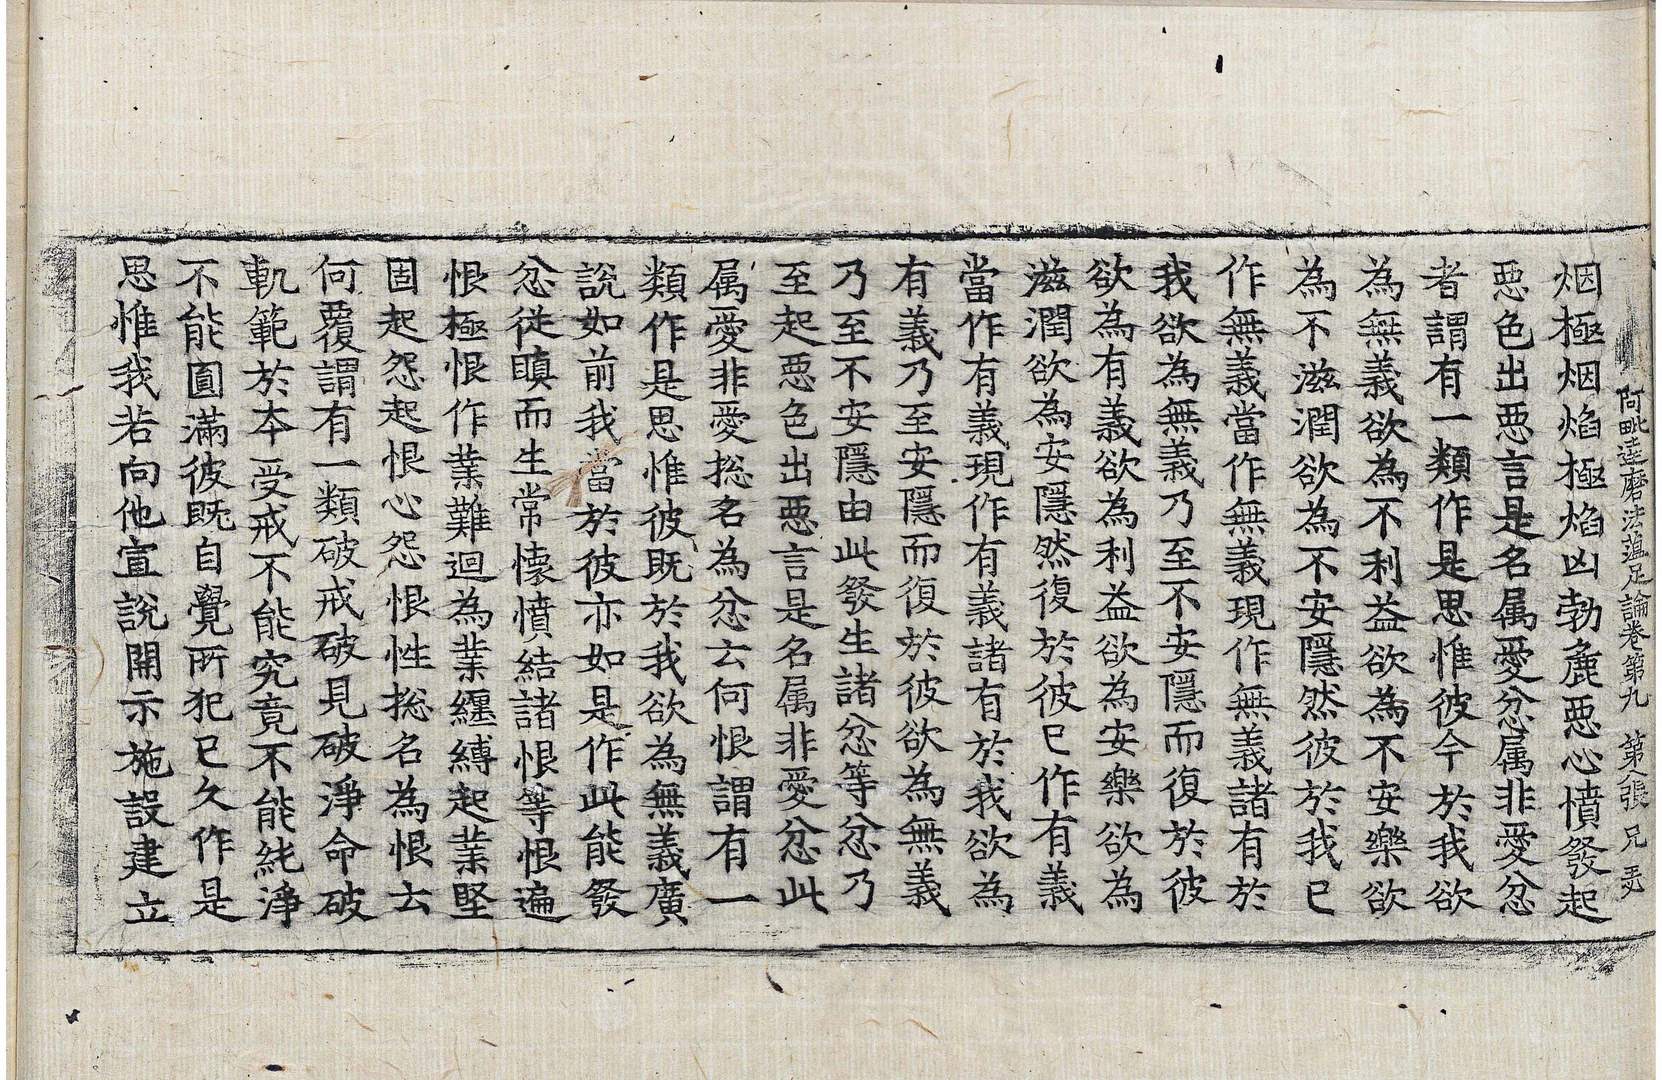 阿毗達磨法蕴足論卷第九 第八張 兄
烟極烟焰極焰凶勃麁惡心憤發起
惡色出惡言是名属愛忿属非愛忿
者謂有一類作是思惟彼今於我欲
為無義欲為不利益欲為不安樂欲
為不滋潤欲為不安隱然彼於我已
作無義當作無義現作無義諸有於
我欲為無義乃至不安隱而復於彼
欲為有義欲為利益欲為安樂欲為
滋潤欲為安隱然復於彼已作有義
當作有義現作有義諸有於我欲為
有義乃至安隱而復於彼欲為無義
乃至不安隱由此發生諸忿等忿乃
至起惡色出惡言是名属非愛忿此
属愛非愛忿揔名為忿云何恨謂有一
類作是思惟彼既於我欲為無義廣
說如前我當於彼亦如是作此能發
忿從瞋而生常懷憤結諸恨等恨遍
恨極恨作業難迴為業纏縛起業堅
固起怨起恨心怨恨性揔名為恨云
何覆謂有一類破戒破見破淨命破
軌範於本受戒不能究竟不能純淨
不能圓滿彼既自覺所犯已久作是
思惟我若向他宣說開示施設建立